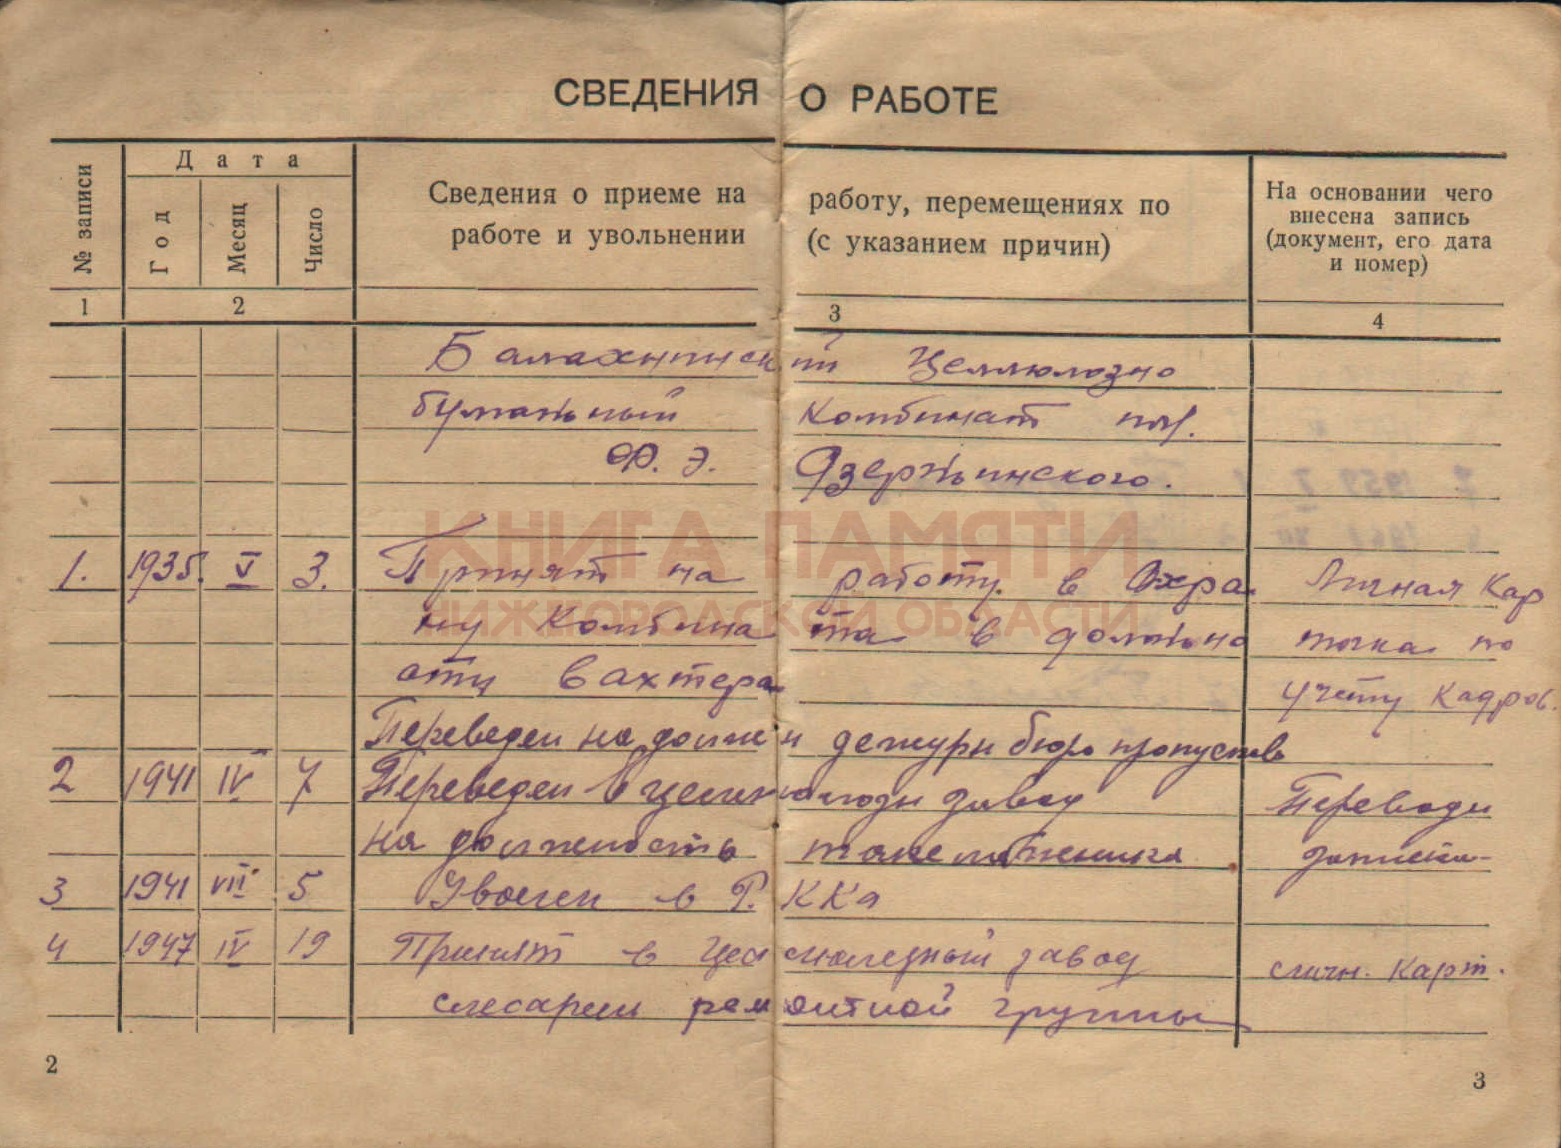 СВЕДЕНИЯ О РАБОТЕ
№ записи
Дата
Год
Месяц
Число
Сведения о приеме на работу, перемещениях по
работе и увольнении (с указанием причин)
На основании чего
внесена запись
(документ, его дата
и номер)
1 2 3 4
Балахнинский Целлюлозно
бумажный Комбинат им.
Ф. Э. Дзержинского.
КНИГА ПАМЯТИ
НИЖЕГОРОДСКОЙ ОБЛАСТИ
1. 1935. V 3. Принят на работу в Охра Личная Кар
ну Комбината в должно точка по
сти вахтера учету Кадров.
Переведен на должн дежурн бюро пропусков
2 1941 IV 7 Переведен в завод Переводн
на должность записка
3 1941 VII 5 Уволен в Р.ККа
4 1947 IV 19 Принят в завод личн. карт.
слесарем ремонтной группы
2 3